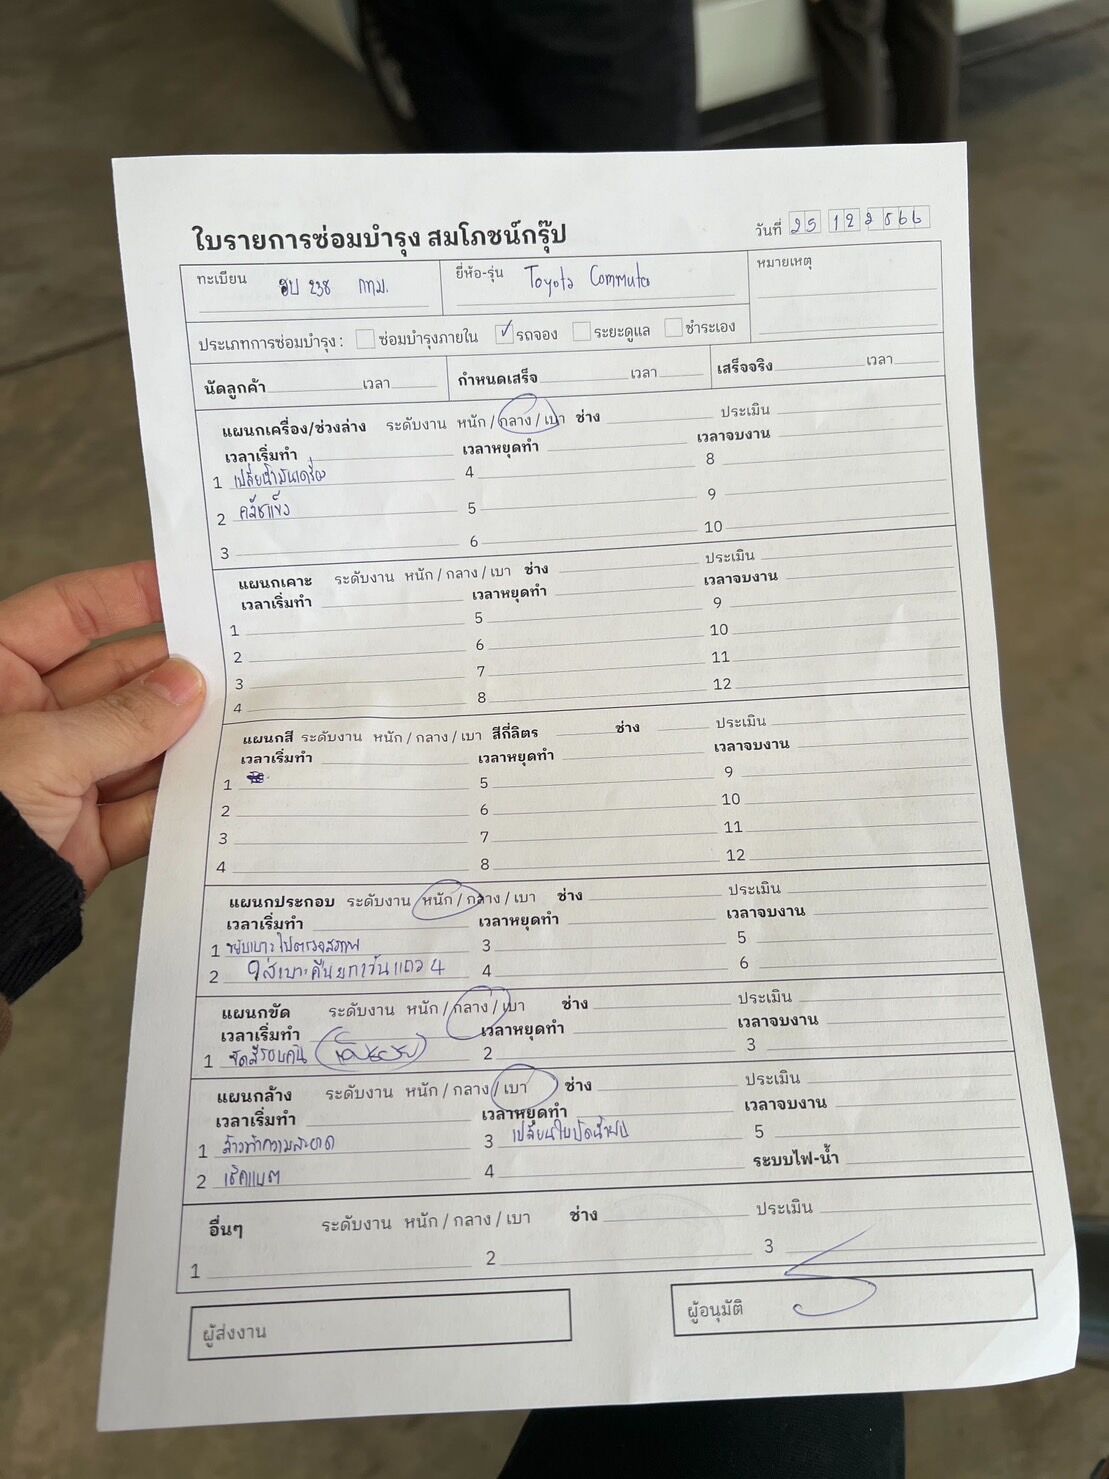 ใบรายการซ่อมบำรุง สมโภชน์กรุ๊ป
วันที่ 25 12 2566
ทะเบียน ฮบ 238 กทม.
ยี่ห้อ-รุ่น Toyota Commuter
หมายเหตุ
ประเภทการซ่อมบำรุง : ซ่อมบำรุงภายใน ✓ รถจอง ระยะดูแล ชำระเอง
นัดลูกค้า เวลา กำหนดเสร็จ เวลา เสร็จจริง เวลา
แผนกเครื่อง/ช่วงล่าง ระดับงาน หนัก / กลาง / เบา ช่าง ประเมิน
เวลาเริ่มทำ เวลาหยุดทำ เวลาจบงาน
1 เปลี่ยนน้ำมันเครื่อง 4 8
2 คลัชแข็ง 5 9
3 6 10
แผนกเคาะ ระดับงาน หนัก / กลาง / เบา ช่าง ประเมิน
เวลาเริ่มทำ เวลาหยุดทำ เวลาจบงาน
1 5 9
2 6 10
3 7 11
4 8 12
แผนกสี ระดับงาน หนัก / กลาง / เบา สีกี่ลิตร ช่าง ประเมิน
เวลาเริ่มทำ เวลาหยุดทำ เวลาจบงาน
1 5 9
2 6 10
3 7 11
4 8 12
แผนกประกอบ ระดับงาน หนัก / กลาง / เบา ช่าง ประเมิน
เวลาเริ่มทำ เวลาหยุดทำ เวลาจบงาน
1 ขยับเบาะไปตรวจสภาพ 3 5
2 ใส่เบาะคืนยกเว้นแถว 4 4 6
แผนกขัด ระดับงาน หนัก / กลาง / เบา ช่าง ประเมิน
เวลาเริ่มทำ เวลาหยุดทำ เวลาจบงาน
1 ขัดสีรอบคัน 2 3
แผนกล้าง ระดับงาน หนัก / กลาง / เบา ช่าง ประเมิน
เวลาเริ่มทำ เวลาหยุดทำ เวลาจบงาน
1 ล้างทำความสะอาด 3 เปลี่ยนใบปัดน้ำฝน 5
2 เช็คแบต 4 ระบบไฟ-น้ำ
อื่นๆ ระดับงาน หนัก / กลาง / เบา ช่าง ประเมิน
1 2 3
ผู้ส่งงาน
ผู้อนุมัติ